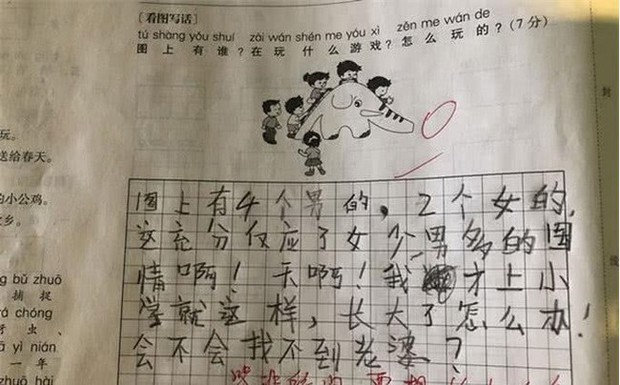 [看图写话]
tú shàng yǒu shuí zài wán shén me yóu xì zěn me wán de
图上有谁?在玩什么游戏?怎么玩的?(7分)
玩。
送给春天。
的小公鸡。
乡。
bǔ zhuō
捕捉
chóng
虫、
yì nián
一年
封
线
图上有4个男的,2个女的,
这充分仅应了女少男多的国
情啊!天啊!我才上小
学就这样,长大了怎么办!
会不会找不到老婆?